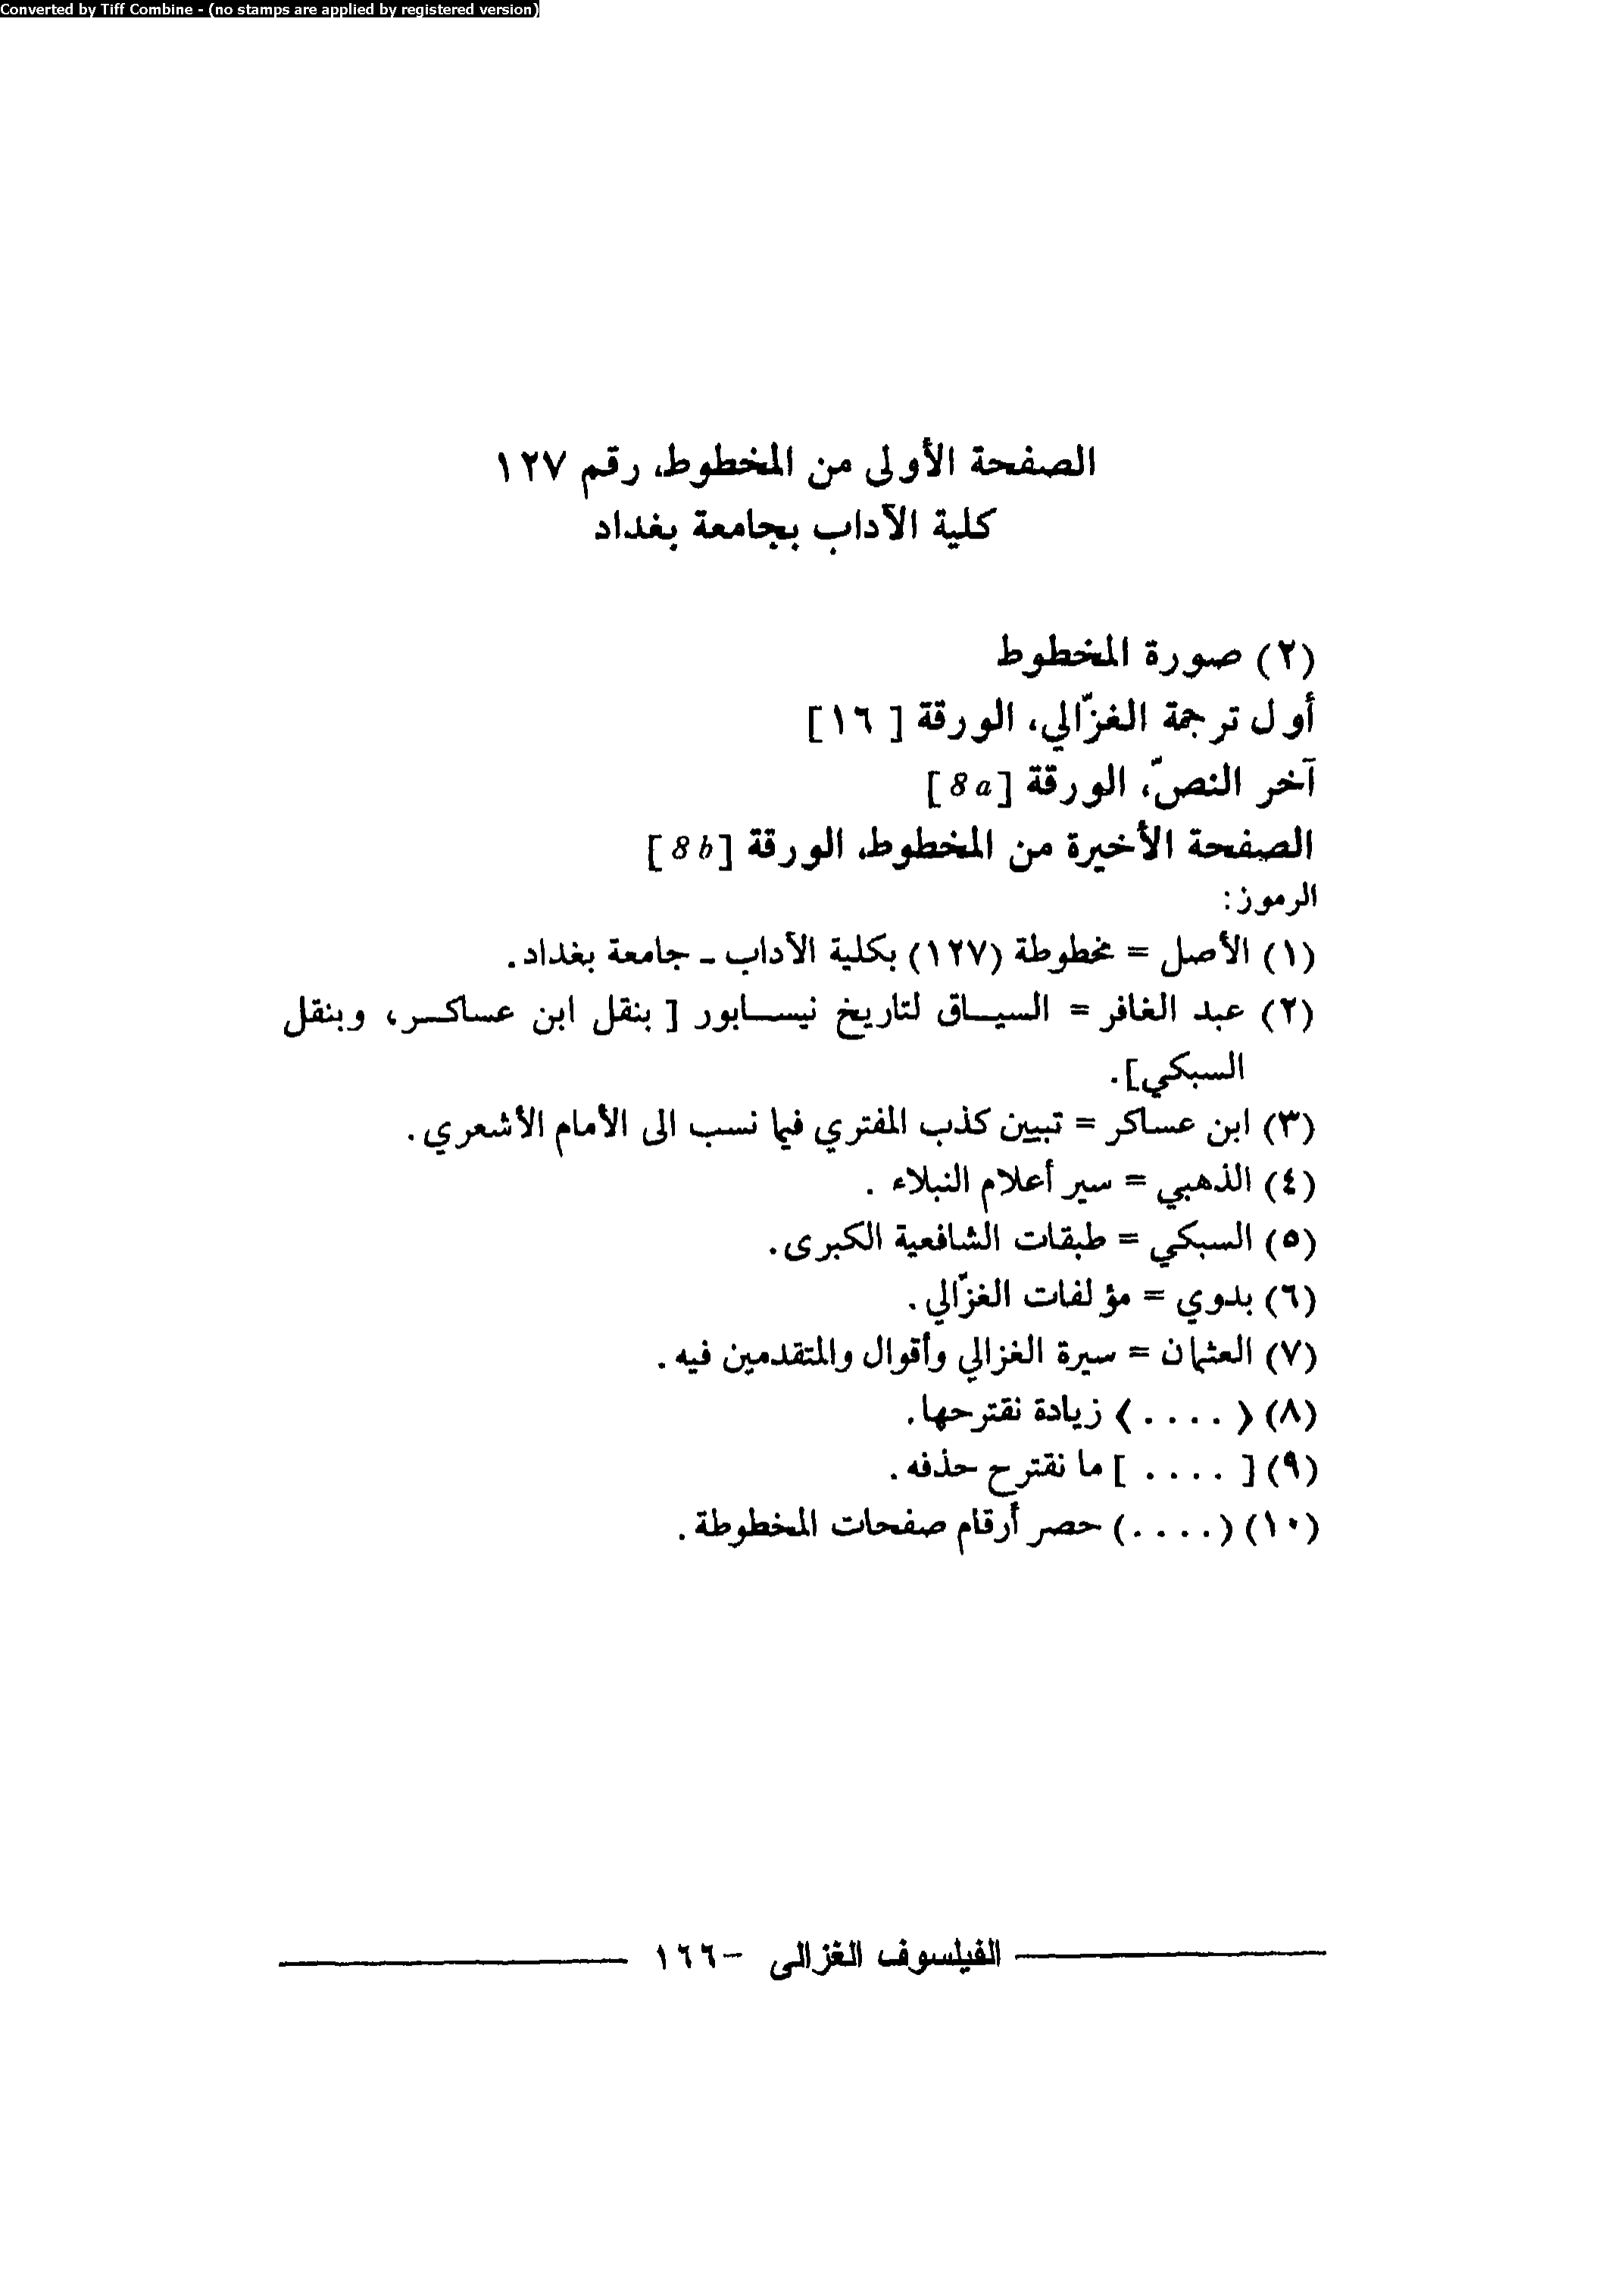 Converted by Tiff Combine - (no stamps are applied by registered version)
الصفحة الأولى من المخطوط، رقم ١٢٧
كلية الآداب بجامعة بغداد
(٢) صورة المخطوط
أول ترجمة الغزّالي، الورقة [ ١٦]
آخر النصّ، الورقة [8a]
الصفحة الأخيرة من المخطوط، الورقة [8b]
الرموز:
(١) الأصل = مخطوطة (١٢٧) بكلية الآداب - جامعة بغداد.
(٢) عبد الغافر = السياق لتاريخ نيسابور [ بنقل ابن عساكر، وبنقل
السبكي].
(٣) ابن عساكر = تبيين كذب المفتري فيما نسب الى الأمام الأشعري.
(٤) الذهبي = سير أعلام النبلاء .
(٥) السبكي = طبقات الشافعية الكبرى.
(٦) بدوي = مؤلفات الغزّالي.
(٧) العثمان = سيرة الغزالي وأقوال والمتقدمين فيه.
(٨) ⟨ . . . . ⟩ زيادة نقترحها.
(٩) [ . . . . ] ما نقترح حذفه.
(١٠) (. . . .) حصر أرقام صفحات المخطوطة.
الفيلسوف الغزالى -١٦٦